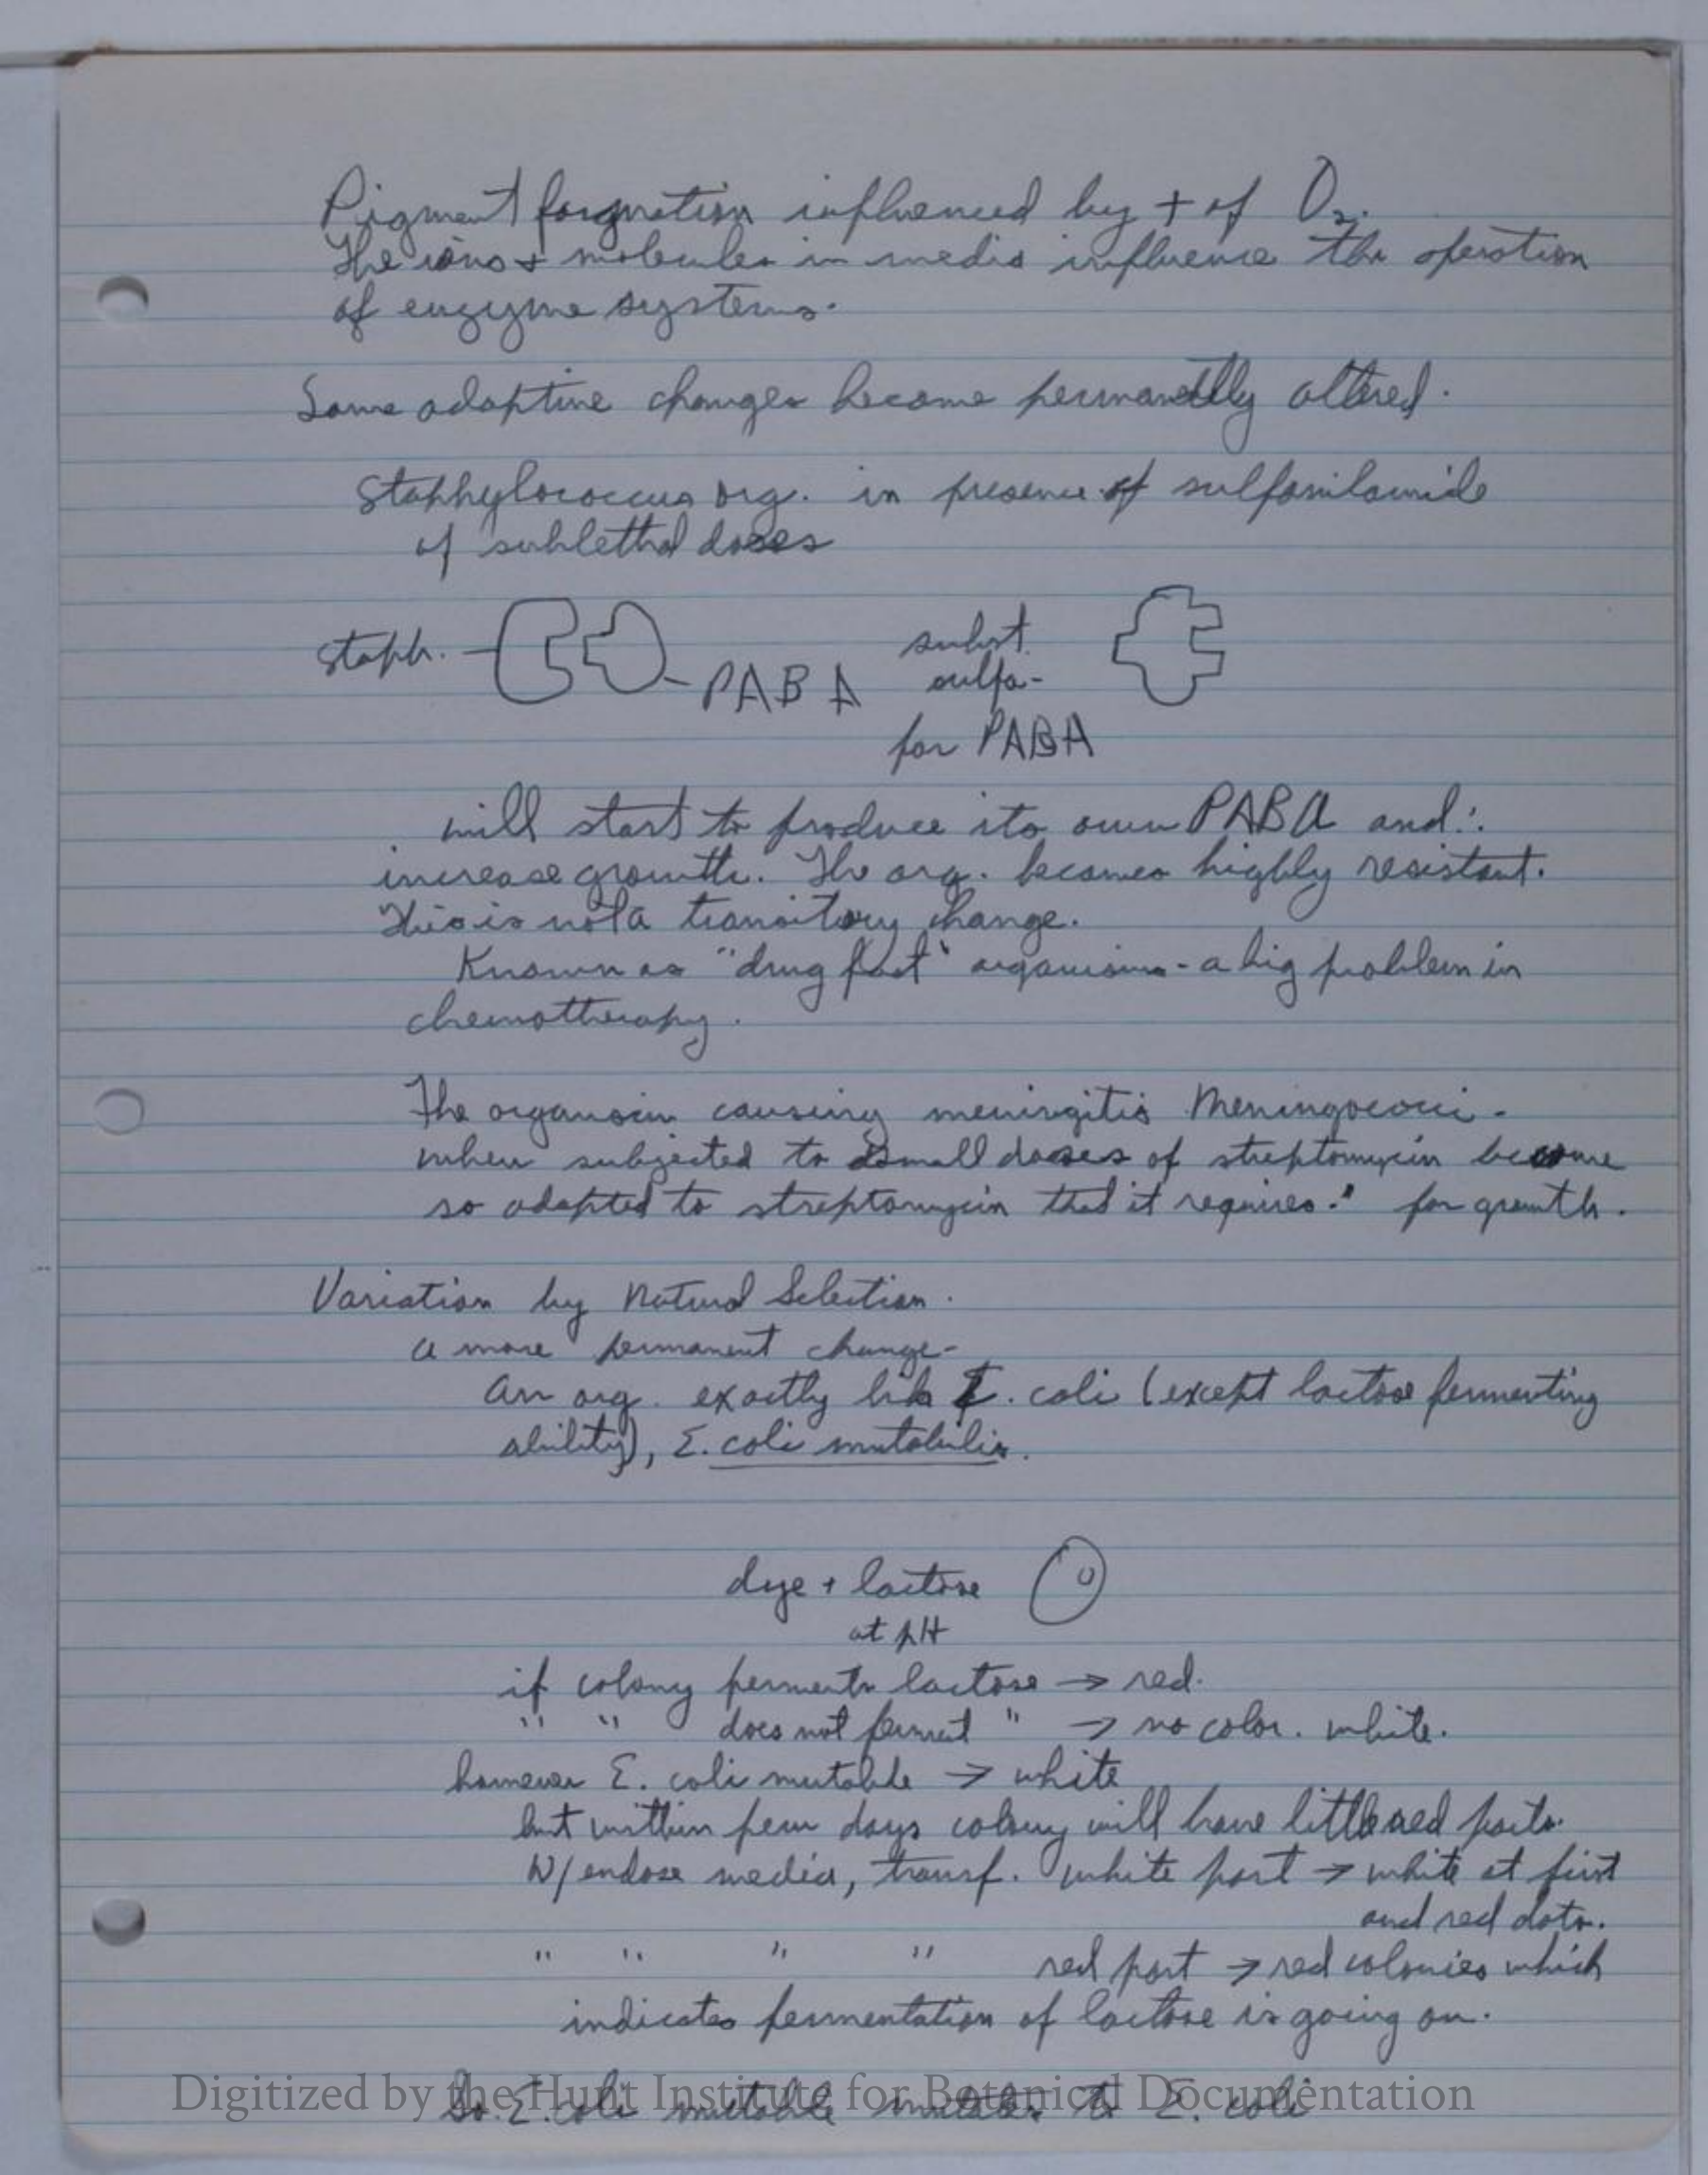 Pigment formation influenced by + of O₂.
The ions + molecules in media influence the operation
of enzyme systems.
Some adaptive changes become permanetlly altered.
Staphylococcus org. in presence of sulfanilamide
of sublethal doses
staph.
PABA
subst.
sulfa-
for PABA
will start to produce its own PABA and ∴
increase growth. The org. becomes highly resistant.
This is not a transitory change.
Known as "drug fast" organisms - a big problem in
chemotherapy.
The organism causing meningitis Meningococci -
when subjected to small doses of streptomycin become
so adapted to streptomycin that it requires " for growth.
Variation by Natural Selection.
a more permanent change -
An org. exactly like E. coli (except lactose fermenting
ability), E. coli mutabilis.
dye + lactose
at pH
if colony ferments lactose → red.
" " does not ferment " → no color. white.
however E. coli mutabile → white
but within few days colony will have little red parts.
W/ endose media, transf. white part → white at first
and red dots.
" " " " red part → red colonies which
indicates fermentation of lactose is going on.
So E. coli mutabile mutates to E. coli
Digitized by the Hunt Institute for Botanical Documentation